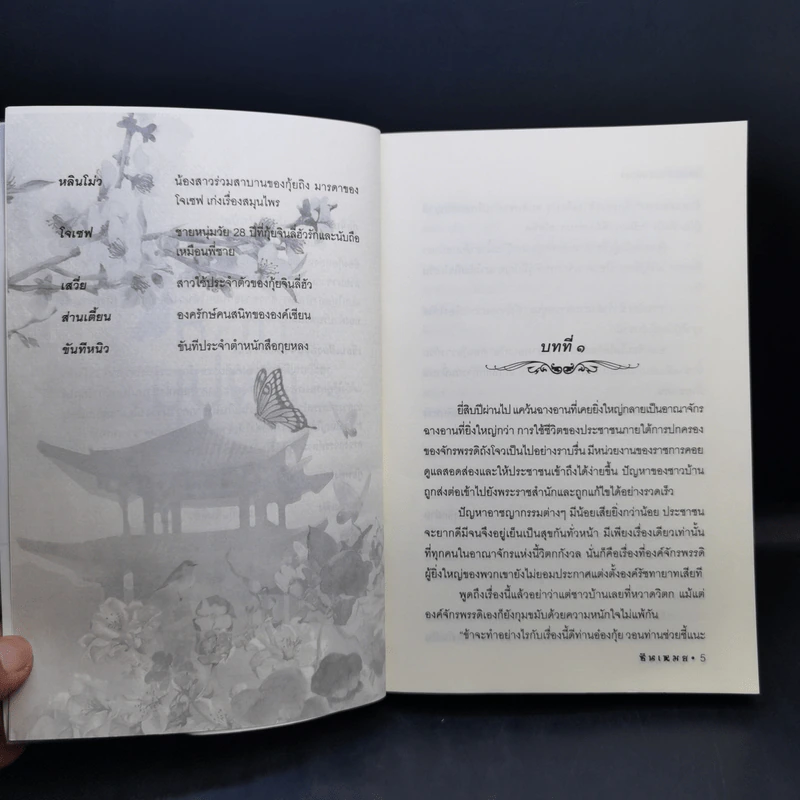 หลินโม่ว น้องสาวร่วมสาบานของกุ้ยถิง มารดาของ
โจเซฟ เก่งเรื่องสมุนไพร
โจเซฟ ชายหนุ่มวัย 28 ปีที่กุ้ยจินลี่ฮัวรักและนับถือ
เหมือนพี่ชาย
เสวี่ย สาวใช้ประจำตัวของกุ้ยจินลี่ฮัว
ส่านเตี้ยน องครักษ์คนสนิทขององค์เซียน
ขันทีหนิว ขันทีประจำตำหนักสือกุยหลง
บทที่ ๑
ยี่สิบปีผ่านไป แคว้นฉางอานที่เคยยิ่งใหญ่กลายเป็นอาณาจักร
ฉางอานที่ยิ่งใหญ่กว่า การใช้ชีวิตของประชาชนภายใต้การปกครอง
ของจักรพรรดิถังโจวเป็นไปอย่างราบรื่น มีหน่วยงานของราชการคอย
ดูแลสอดส่องและให้ประชาชนเข้าถึงได้ง่ายขึ้น ปัญหาของชาวบ้าน
ถูกส่งต่อเข้าไปยังพระราชสำนักและถูกแก้ไขได้อย่างรวดเร็ว
ปัญหาอาชญากรรมต่างๆ มีน้อยเสียยิ่งกว่าน้อย ประชาชน
จะยากดีมีจนจึงอยู่เย็นเป็นสุขกันทั่วหน้า มีเพียงเรื่องเดียวเท่านั้น
ที่ทุกคนในอาณาจักรแห่งนี้วิตกกังวล นั่นก็คือเรื่องที่องค์จักรพรรดิ
ผู้ยิ่งใหญ่ของพวกเขายังไม่ยอมประกาศแต่งตั้งองค์รัชทายาทเสียที
พูดถึงเรื่องนี้แล้วอย่าว่าแต่ชาวบ้านเลยที่หวาดวิตก แม้แต่
องค์จักรพรรดิเองก็ยังกุมขมับด้วยความหนักใจไม่แพ้กัน
"ข้าจะทำอย่างไรกับเรื่องนี้ดีท่านอ๋องกุ้ย วอนท่านช่วยชี้แนะ
ซินเหมย • 5